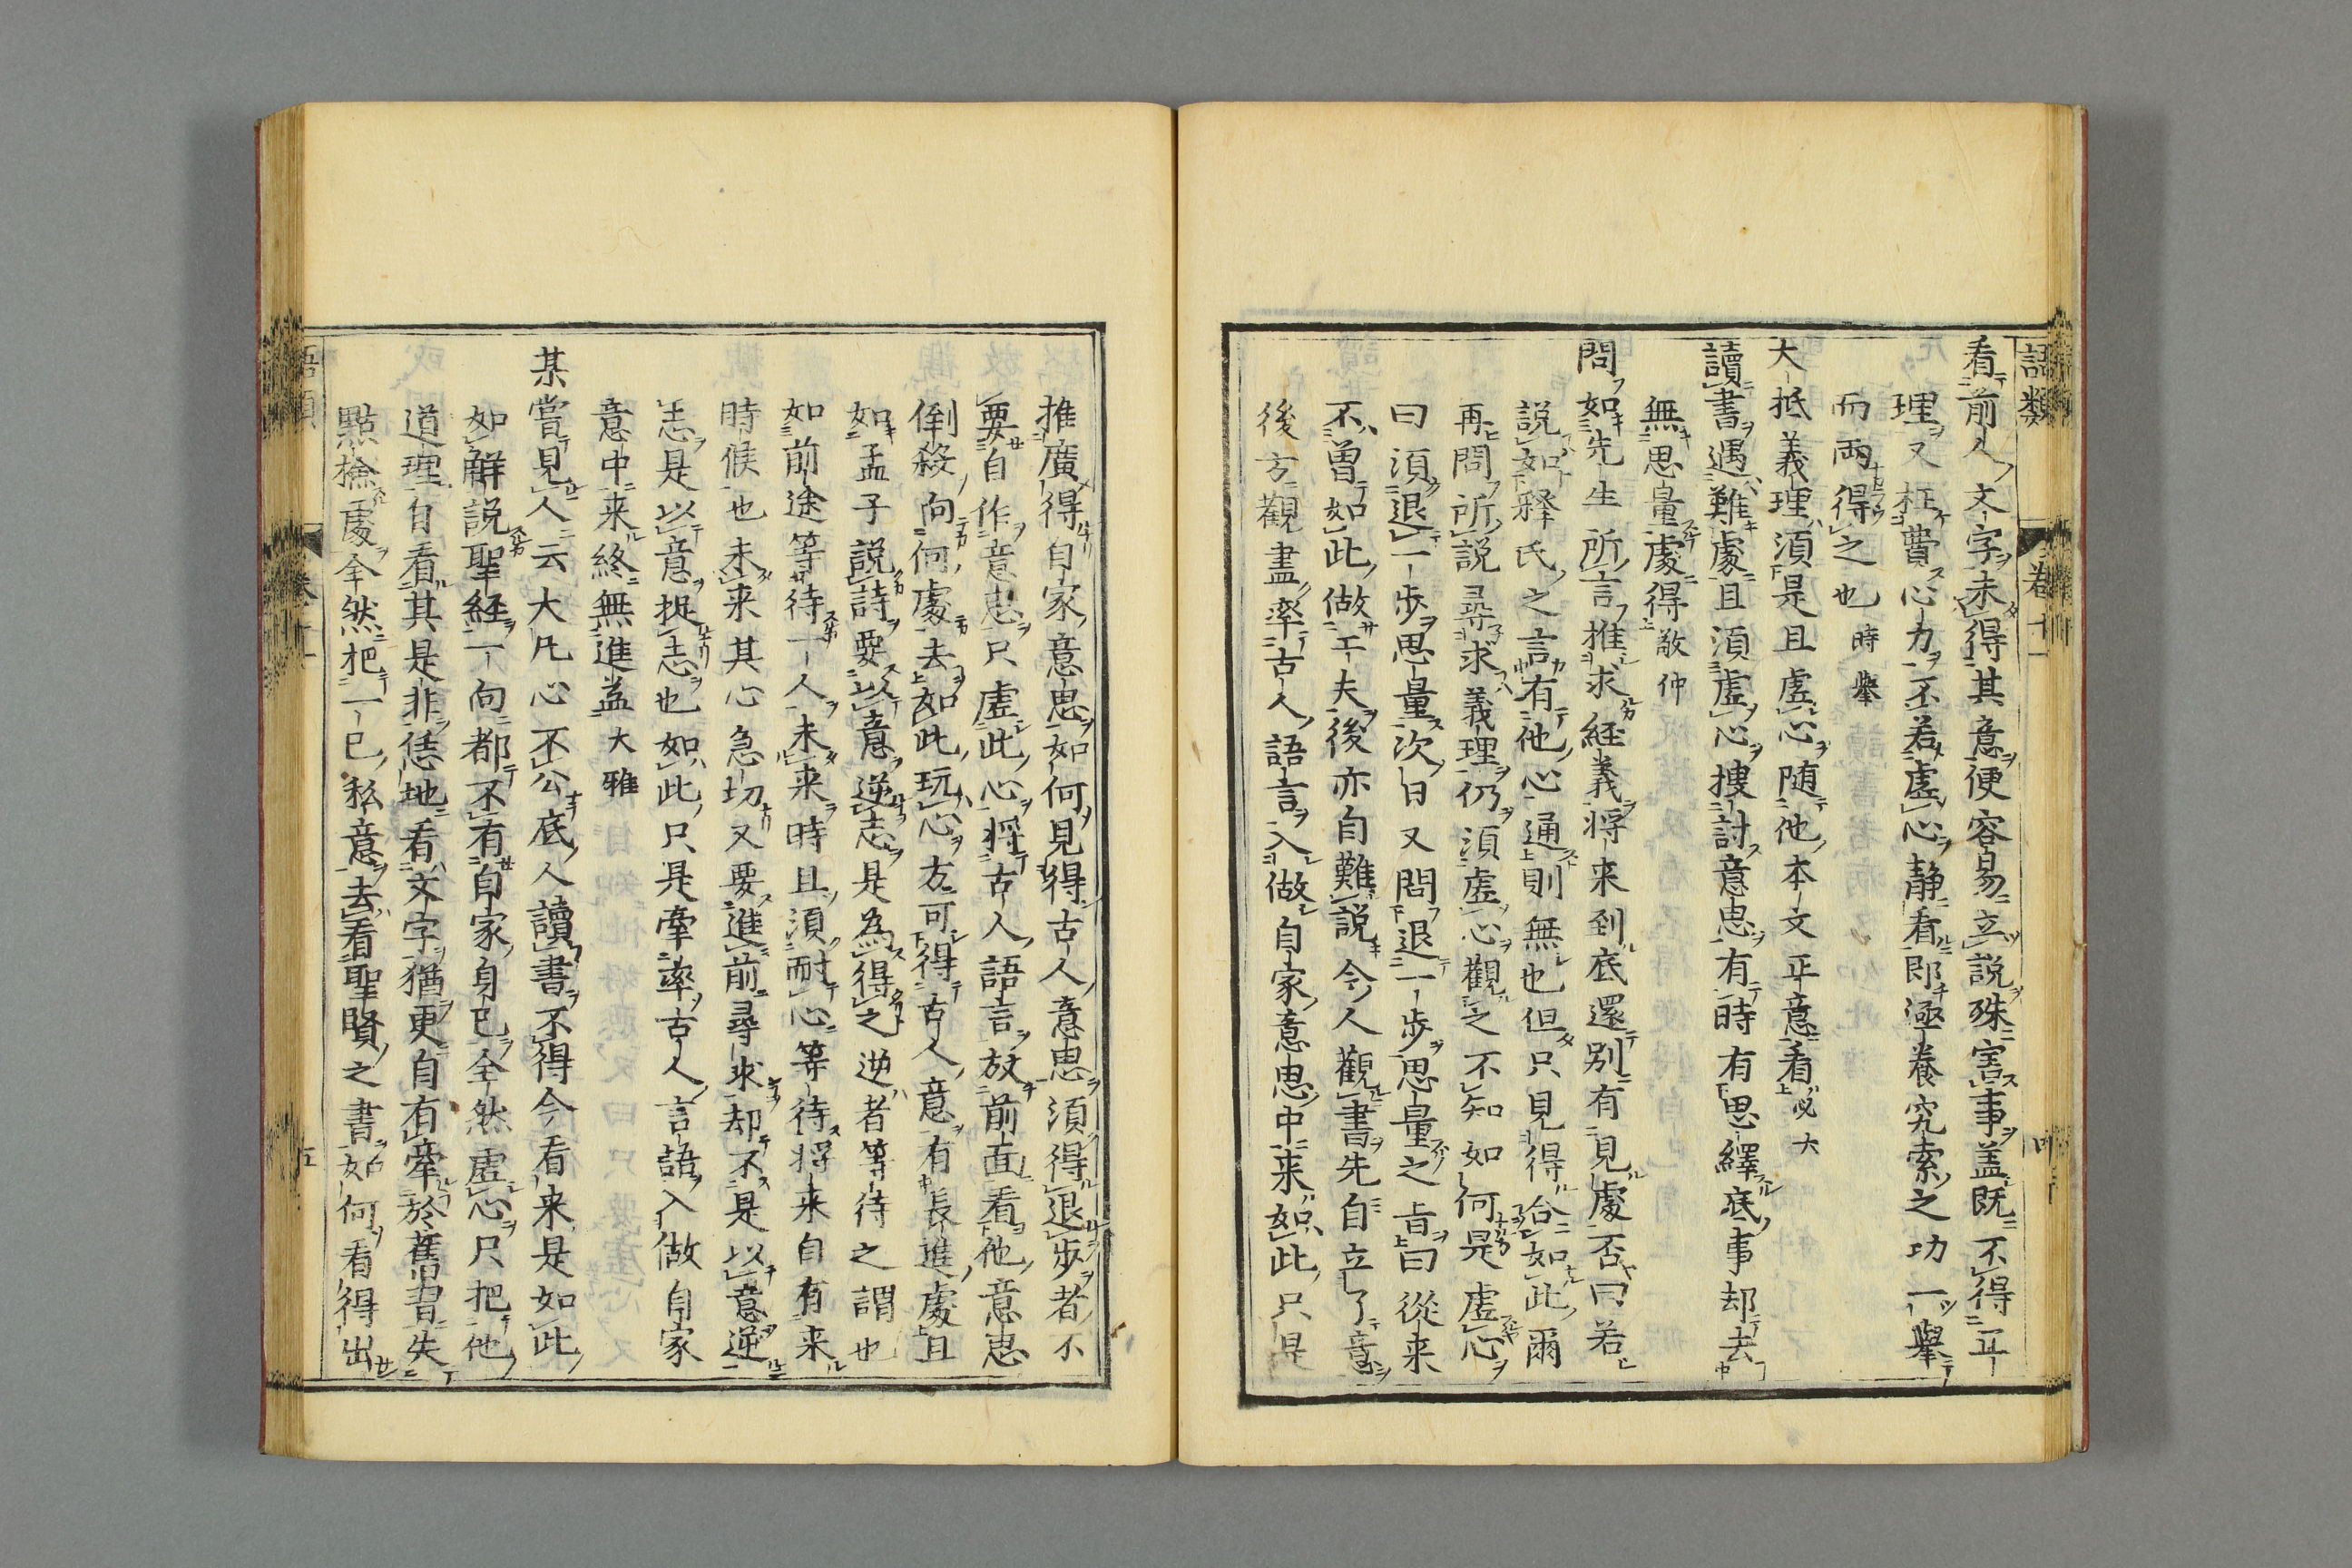 語類 卷十一
看前人文字未得其意便容易立說殊害事盖既不得正
理又枉費心力不若虛心静看即涵養究索之功一舉
而兩得之也 時舉
大抵義理須是且虛心随他本文正意看 必大
讀書遇難處且須虛心搜討意思有時有思繹底事却去
無思量處得 敬仲
問如先生所言推求経義将来到底還别有見處否曰若
説如釋氏之言有他心通則無也但只見得合如此爾
再問所説尋求義理仍須虛心觀之不知如何是虛心
曰須退一步思量次日又問退一步思量之旨曰從来
不曾如此做工夫後亦自難說今人觀書先自立了意
後方觀盡率古人語言入做自家意思中来如此只是
推廣得自家意思如何見得古人意思須得退步者不
要自作意思只虛此心将古人語言放前面看他意思
倒殺向何處去如此玩心方可得古人意有長進處且
如孟子説詩要以意逆志是為得之逆者等待之謂也
如前途等待一人未来時且須耐心等待将来自有来
時候也未来其心急切又要進前尋求却不是以意逆
志是以意捉志也如此只是牽率古人言語入做自家
意中来終無進益 大雅
某嘗見人云大凡心不公底人讀書不得今看来是如此
如解説聖経一向都不有自家身已全然虛心只把他
道理自看其是非恁地看文字猶更自有牽於舊習失
點撿處全然把一已私意去看聖賢之書如何看得出